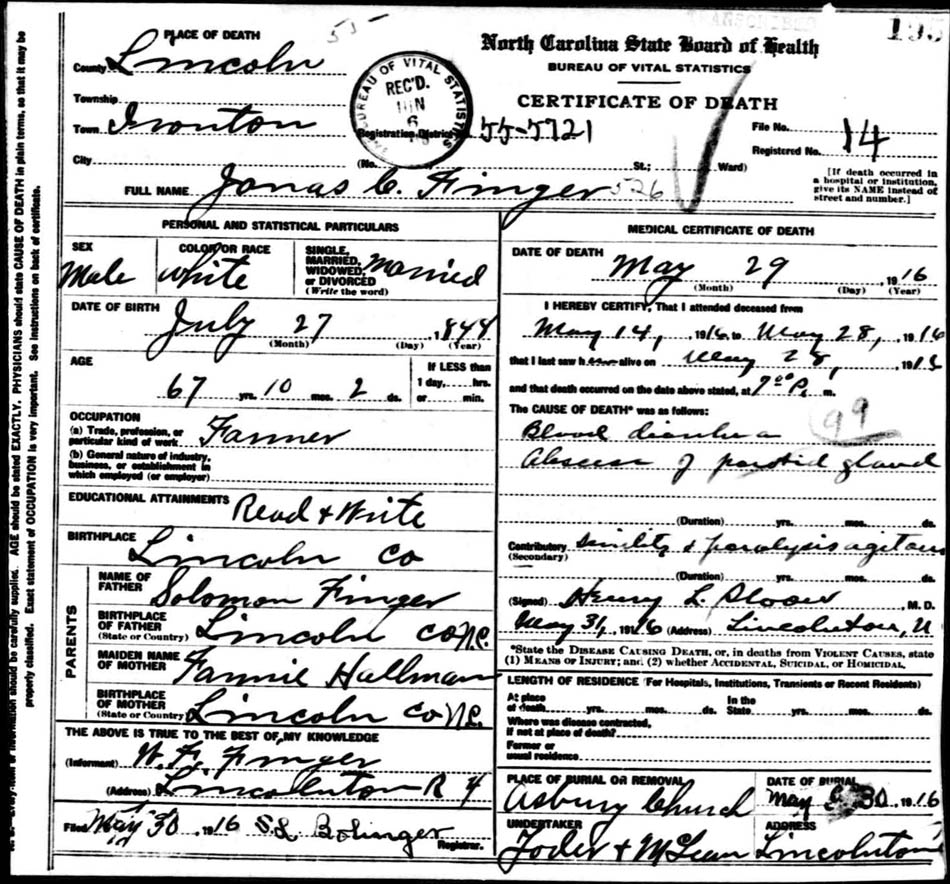 TRANSCRIBED
195
55
PLACE OF DEATH
County Lincoln
Township
Town Ironton
City
BUREAU OF VITAL STATISTICS
REC'D.
JUN
6
North Carolina State Board of Health
BUREAU OF VITAL STATISTICS
CERTIFICATE OF DEATH
Registration District 55-5721
File No.
Registered No. 14
(No. St.; Ward)
[If death occurred in
a hospital or institution,
give its NAME instead of
street and number.]
FULL NAME Jonas C. Finger 526
PERSONAL AND STATISTICAL PARTICULARS
SEX
Male
COLOR OR RACE
white
SINGLE,
MARRIED,
WIDOWED,
or DIVORCED
(Write the word)
Married
DATE OF BIRTH
July 27, 1844
(Month) (Day) (Year)
AGE
67 yrs. 10 mos. 2 ds.
If LESS than
1 day, hrs.
or min.
OCCUPATION
(a) Trade, profession, or
particular kind of work Farmer
(b) General nature of industry,
business, or establishment in
which employed (or employer)
EDUCATIONAL ATTAINMENTS Read & Write
BIRTHPLACE
Lincoln Co
PARENTS
NAME OF
FATHER Solomon Finger
BIRTHPLACE
OF FATHER
(State or Country) Lincoln Co N.C.
MAIDEN NAME
OF MOTHER Fannie Hallman
BIRTHPLACE
OF MOTHER
(State or Country) Lincoln Co N.C.
THE ABOVE IS TRUE TO THE BEST OF MY KNOWLEDGE
(Informant) Finger
(Address) Lincolnton R 4
Filed May 30, 1916 S.L. Bolinger
Registrar.
MEDICAL CERTIFICATE OF DEATH
DATE OF DEATH
May 29 1916
(Month) (Day) (Year)
I HEREBY CERTIFY, That I attended deceased from
May 14, 1916 to May 28, 1916
that I last saw h alive on May 28, 1916
and that death occurred on the date above stated, at 7 00 P. m.
The CAUSE OF DEATH* was as follows:
99
Blood diarrhea
Abscess of parotid gland
(Duration) yrs. mos. ds.
Contributory
(Secondary) Senility & paralysis agitans
(Duration) yrs. mos. ds.
(Signed) Henry L. , M. D.
May 31, 1916 (Address) Lincolnton, N
*State the DISEASE CAUSING DEATH, or, in deaths from VIOLENT CAUSES, state
(1) MEANS OF INJURY; and (2) whether ACCIDENTAL, SUICIDAL, or HOMICIDAL.
LENGTH OF RESIDENCE (For Hospitals, Institutions, Transients or Recent Residents)
At place
of death yrs. mos. ds.
In the
State yrs. mos. ds.
Where was disease contracted,
if not at place of death?
Former or
usual residence
PLACE OF BURIAL OR REMOVAL
Asbury Church
DATE OF BURIAL
May 30 1916
UNDERTAKER
Yoder & McLean
ADDRESS
Lincolnton
information should be carefully supplied. AGE should be stated EXACTLY. PHYSICIANS should state CAUSE OF DEATH in plain terms, so that it may be
properly classified. Exact statement of OCCUPATION is very important. See instructions on back of certificate.